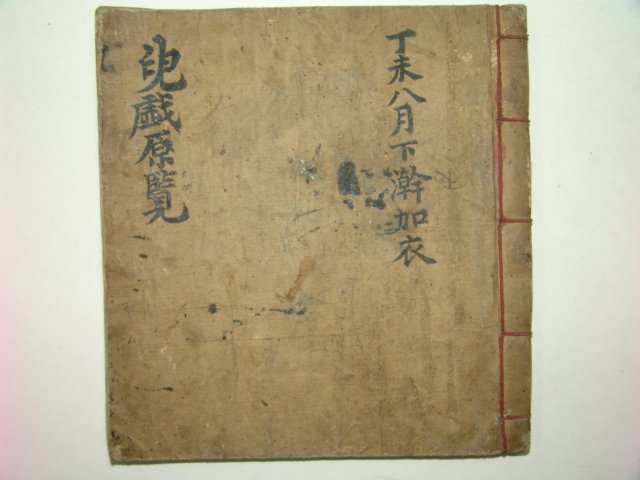 丁未八月下澣加衣
兒戱原覽